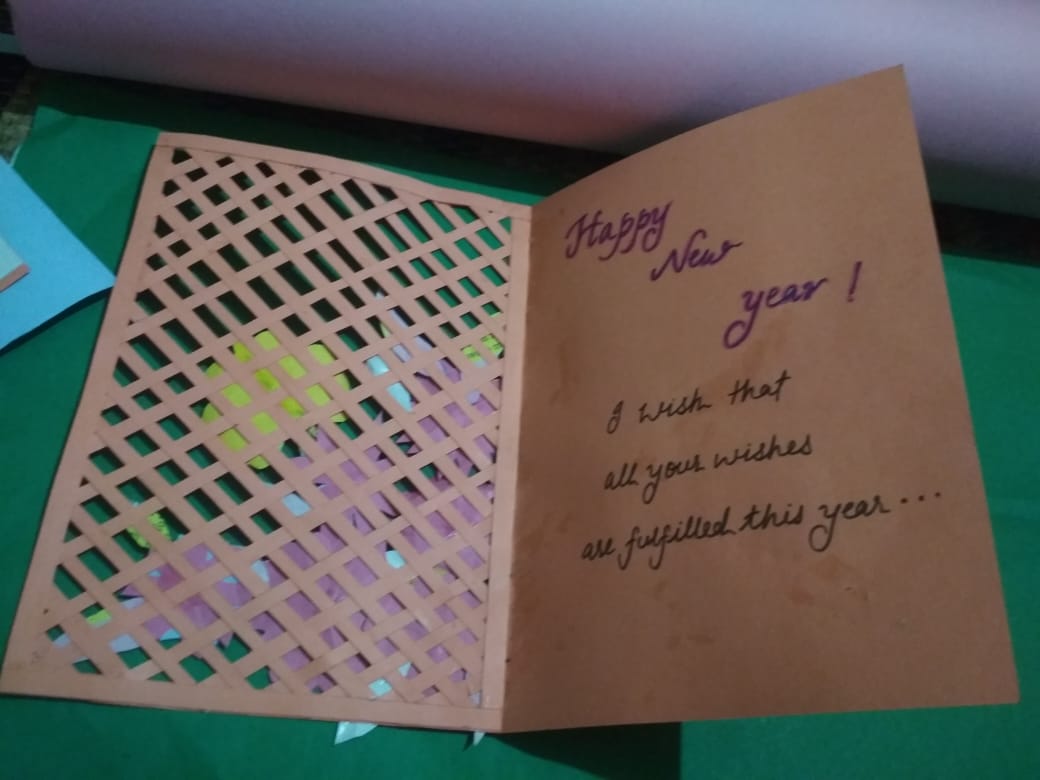 Happy
New
year !
I wish that
all your wishes
are fulfilled this year...